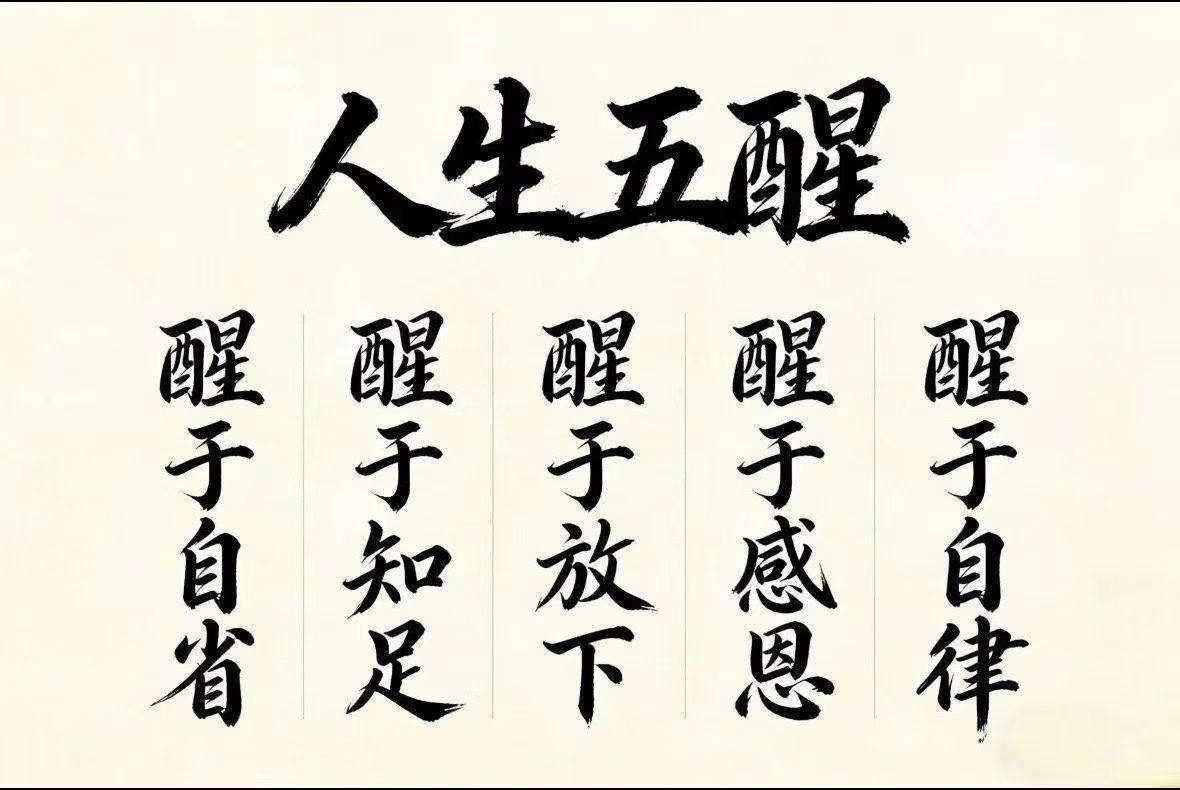 人生五醒
醒于自省
醒于知足
醒于放下
醒于感恩
醒于自律